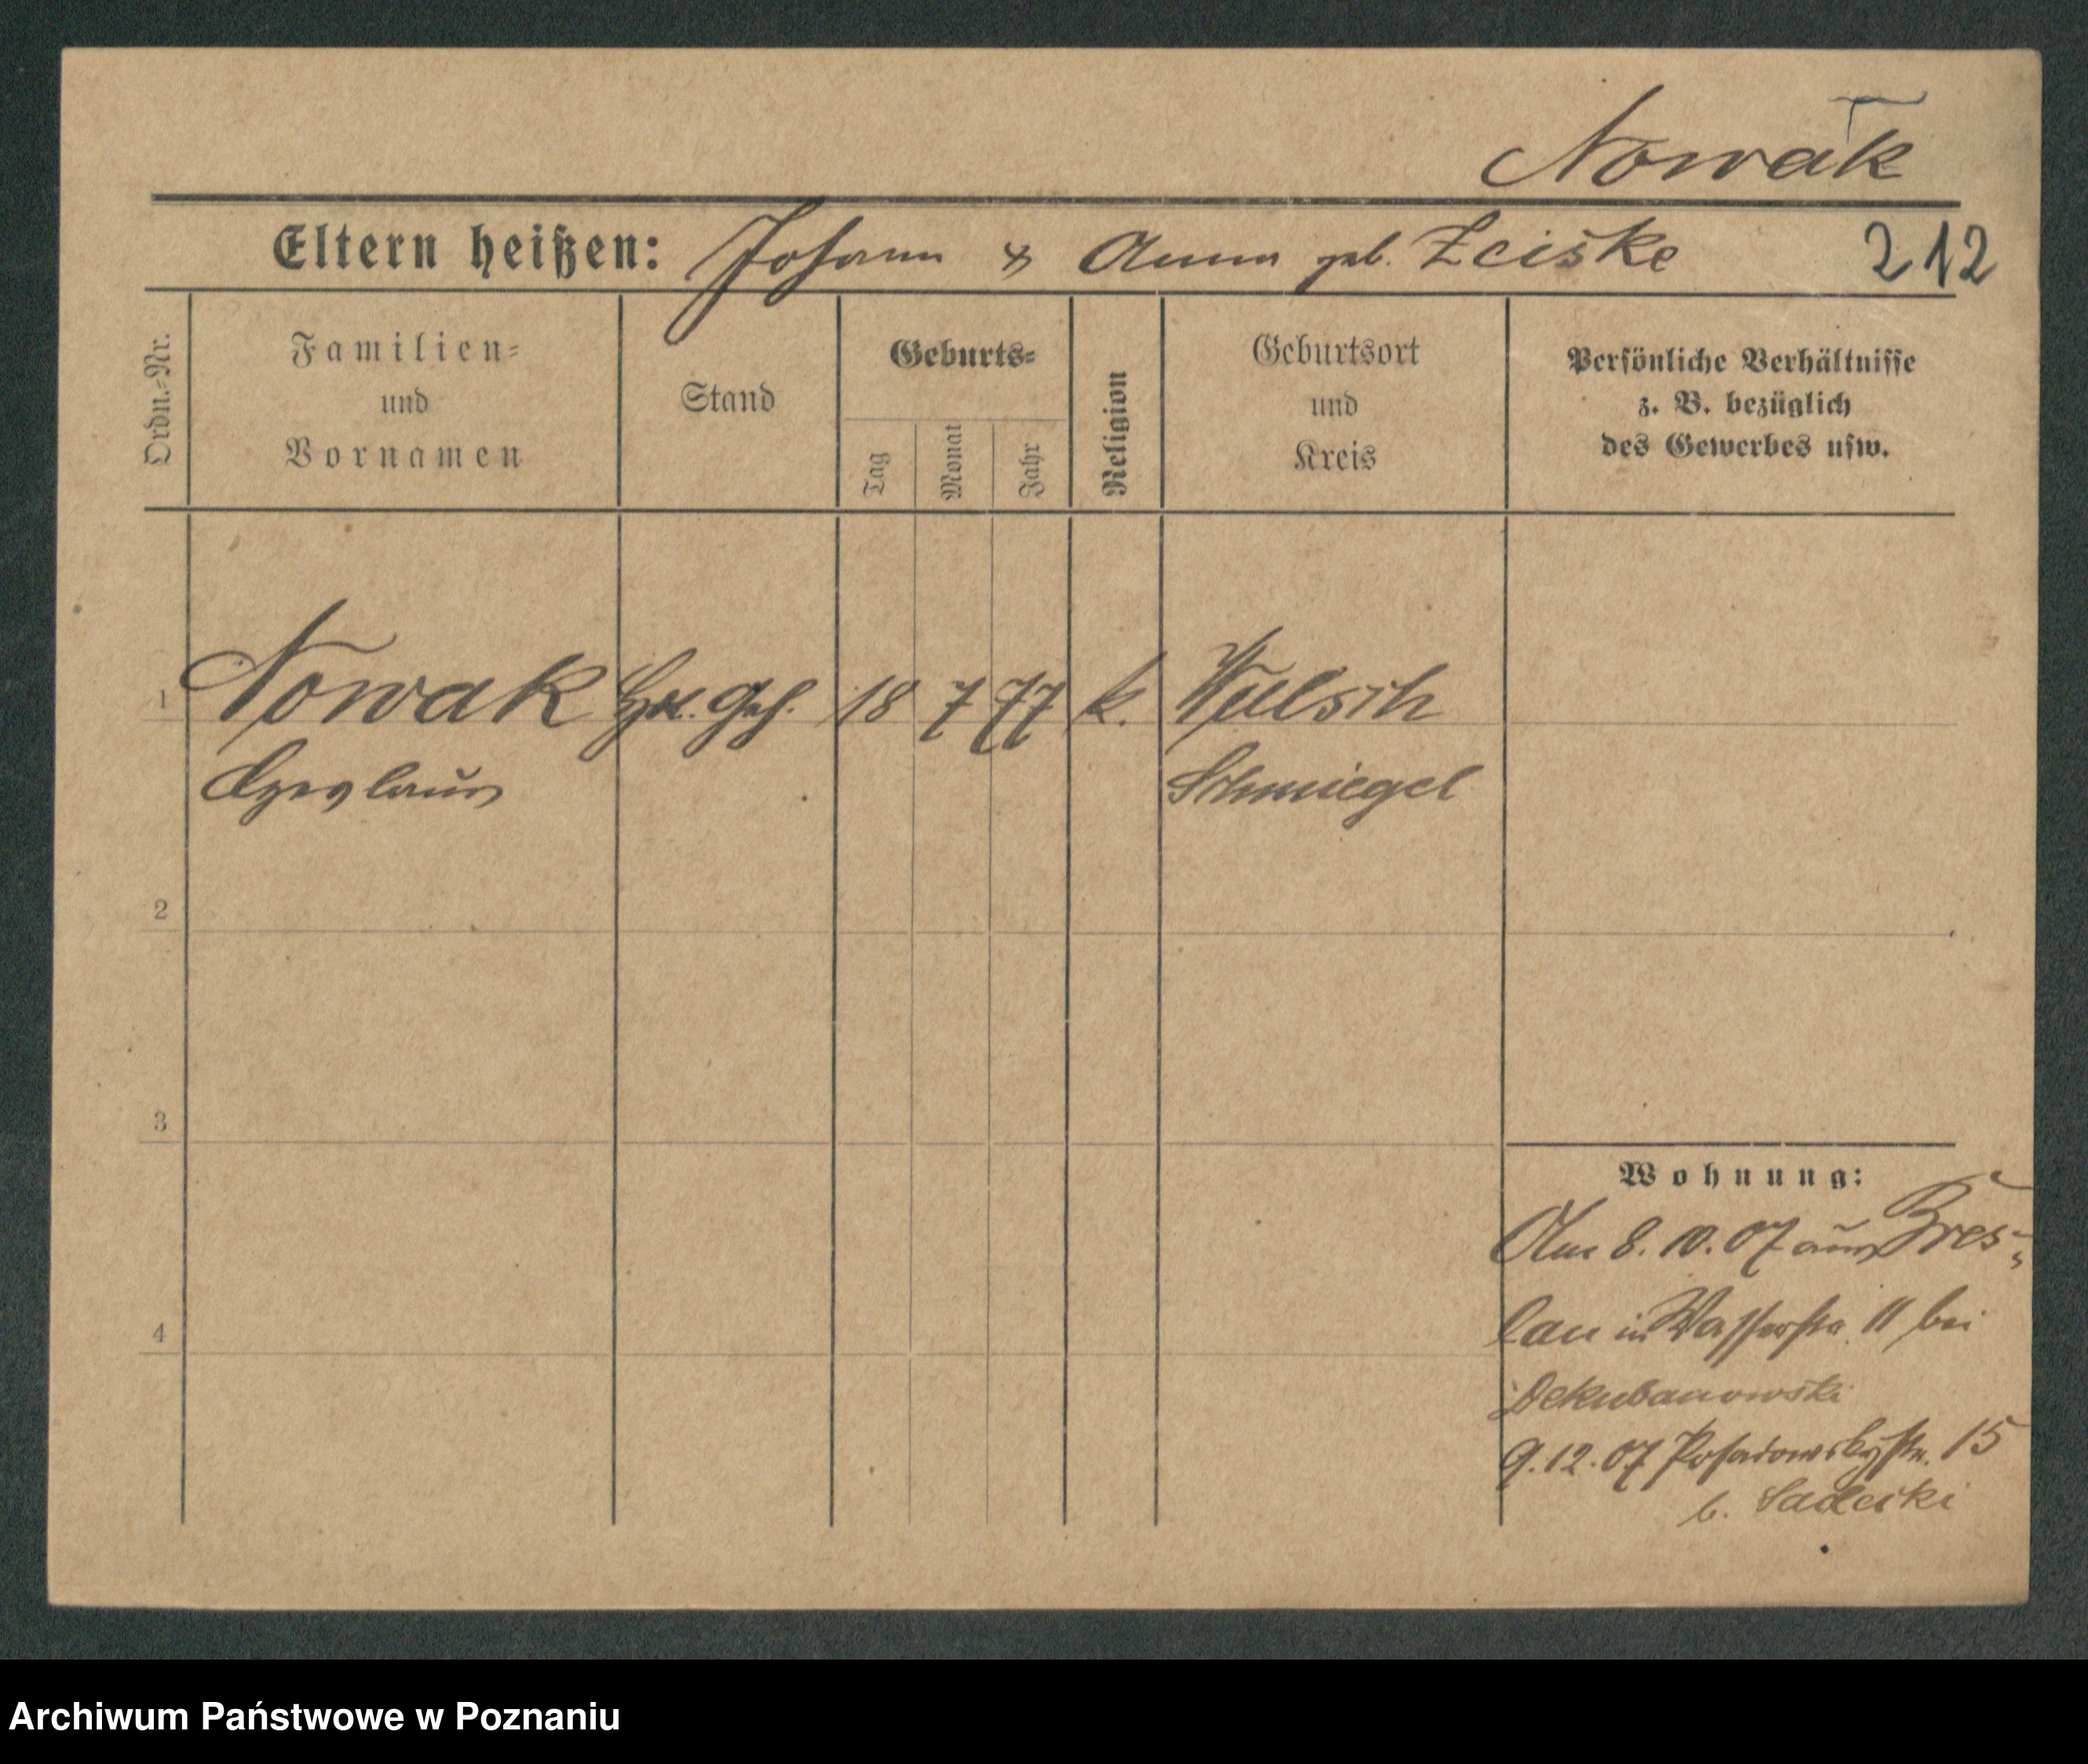 Nowak
Eltern heißen: Johann & Anna geb. Zciske 212
Ordn.-Nr.
Familien-
und
Vornamen
Stand
Geburts-
Tag
Monat
Jahr
Religion
Geburtsort
und
Kreis
Persönliche Verhältnisse
z. B. bezüglich
des Gewerbes usw.
1 Nowak 18 7 77 k. Wulsch
Czeslaus Schmiegel
2
3
4
Wohnung:
Am 8. 10. 07 aus Bres-
lau in Wasserstr. 11 bei
Dekubanowski
9. 12. 07 Posadowskystr. 15
b. Sadecki
Archiwum Państwowe w Poznaniu